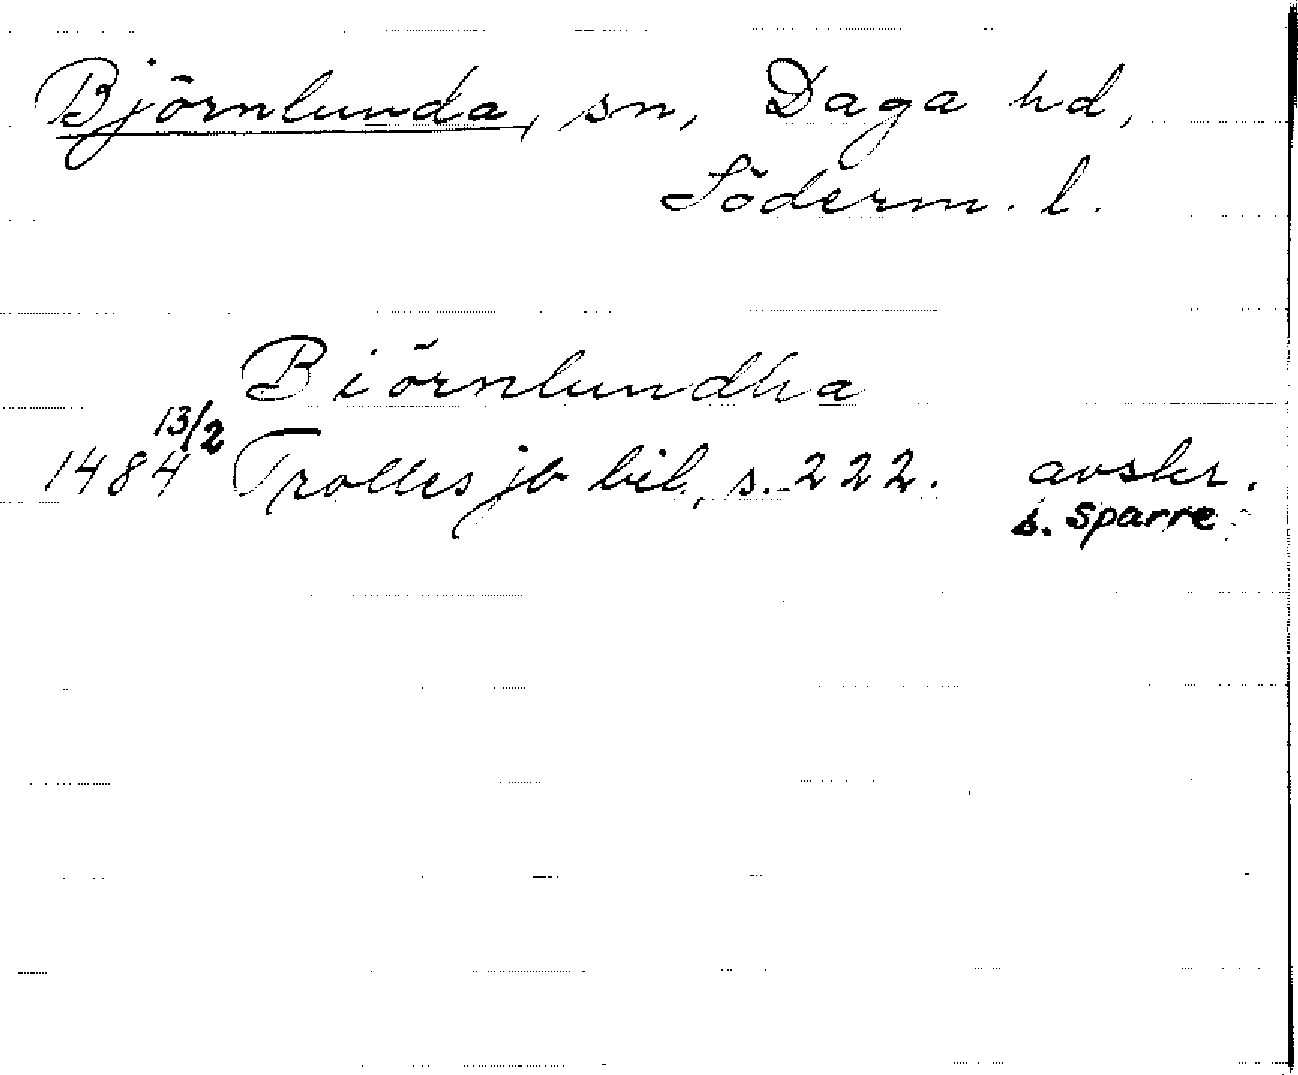 Björnlunda, sn, Daga hd,
Söderm. l.
Biörnlundha
1484 13/2 Trolles jb bil., s. 222. avskr.
s. Sparre